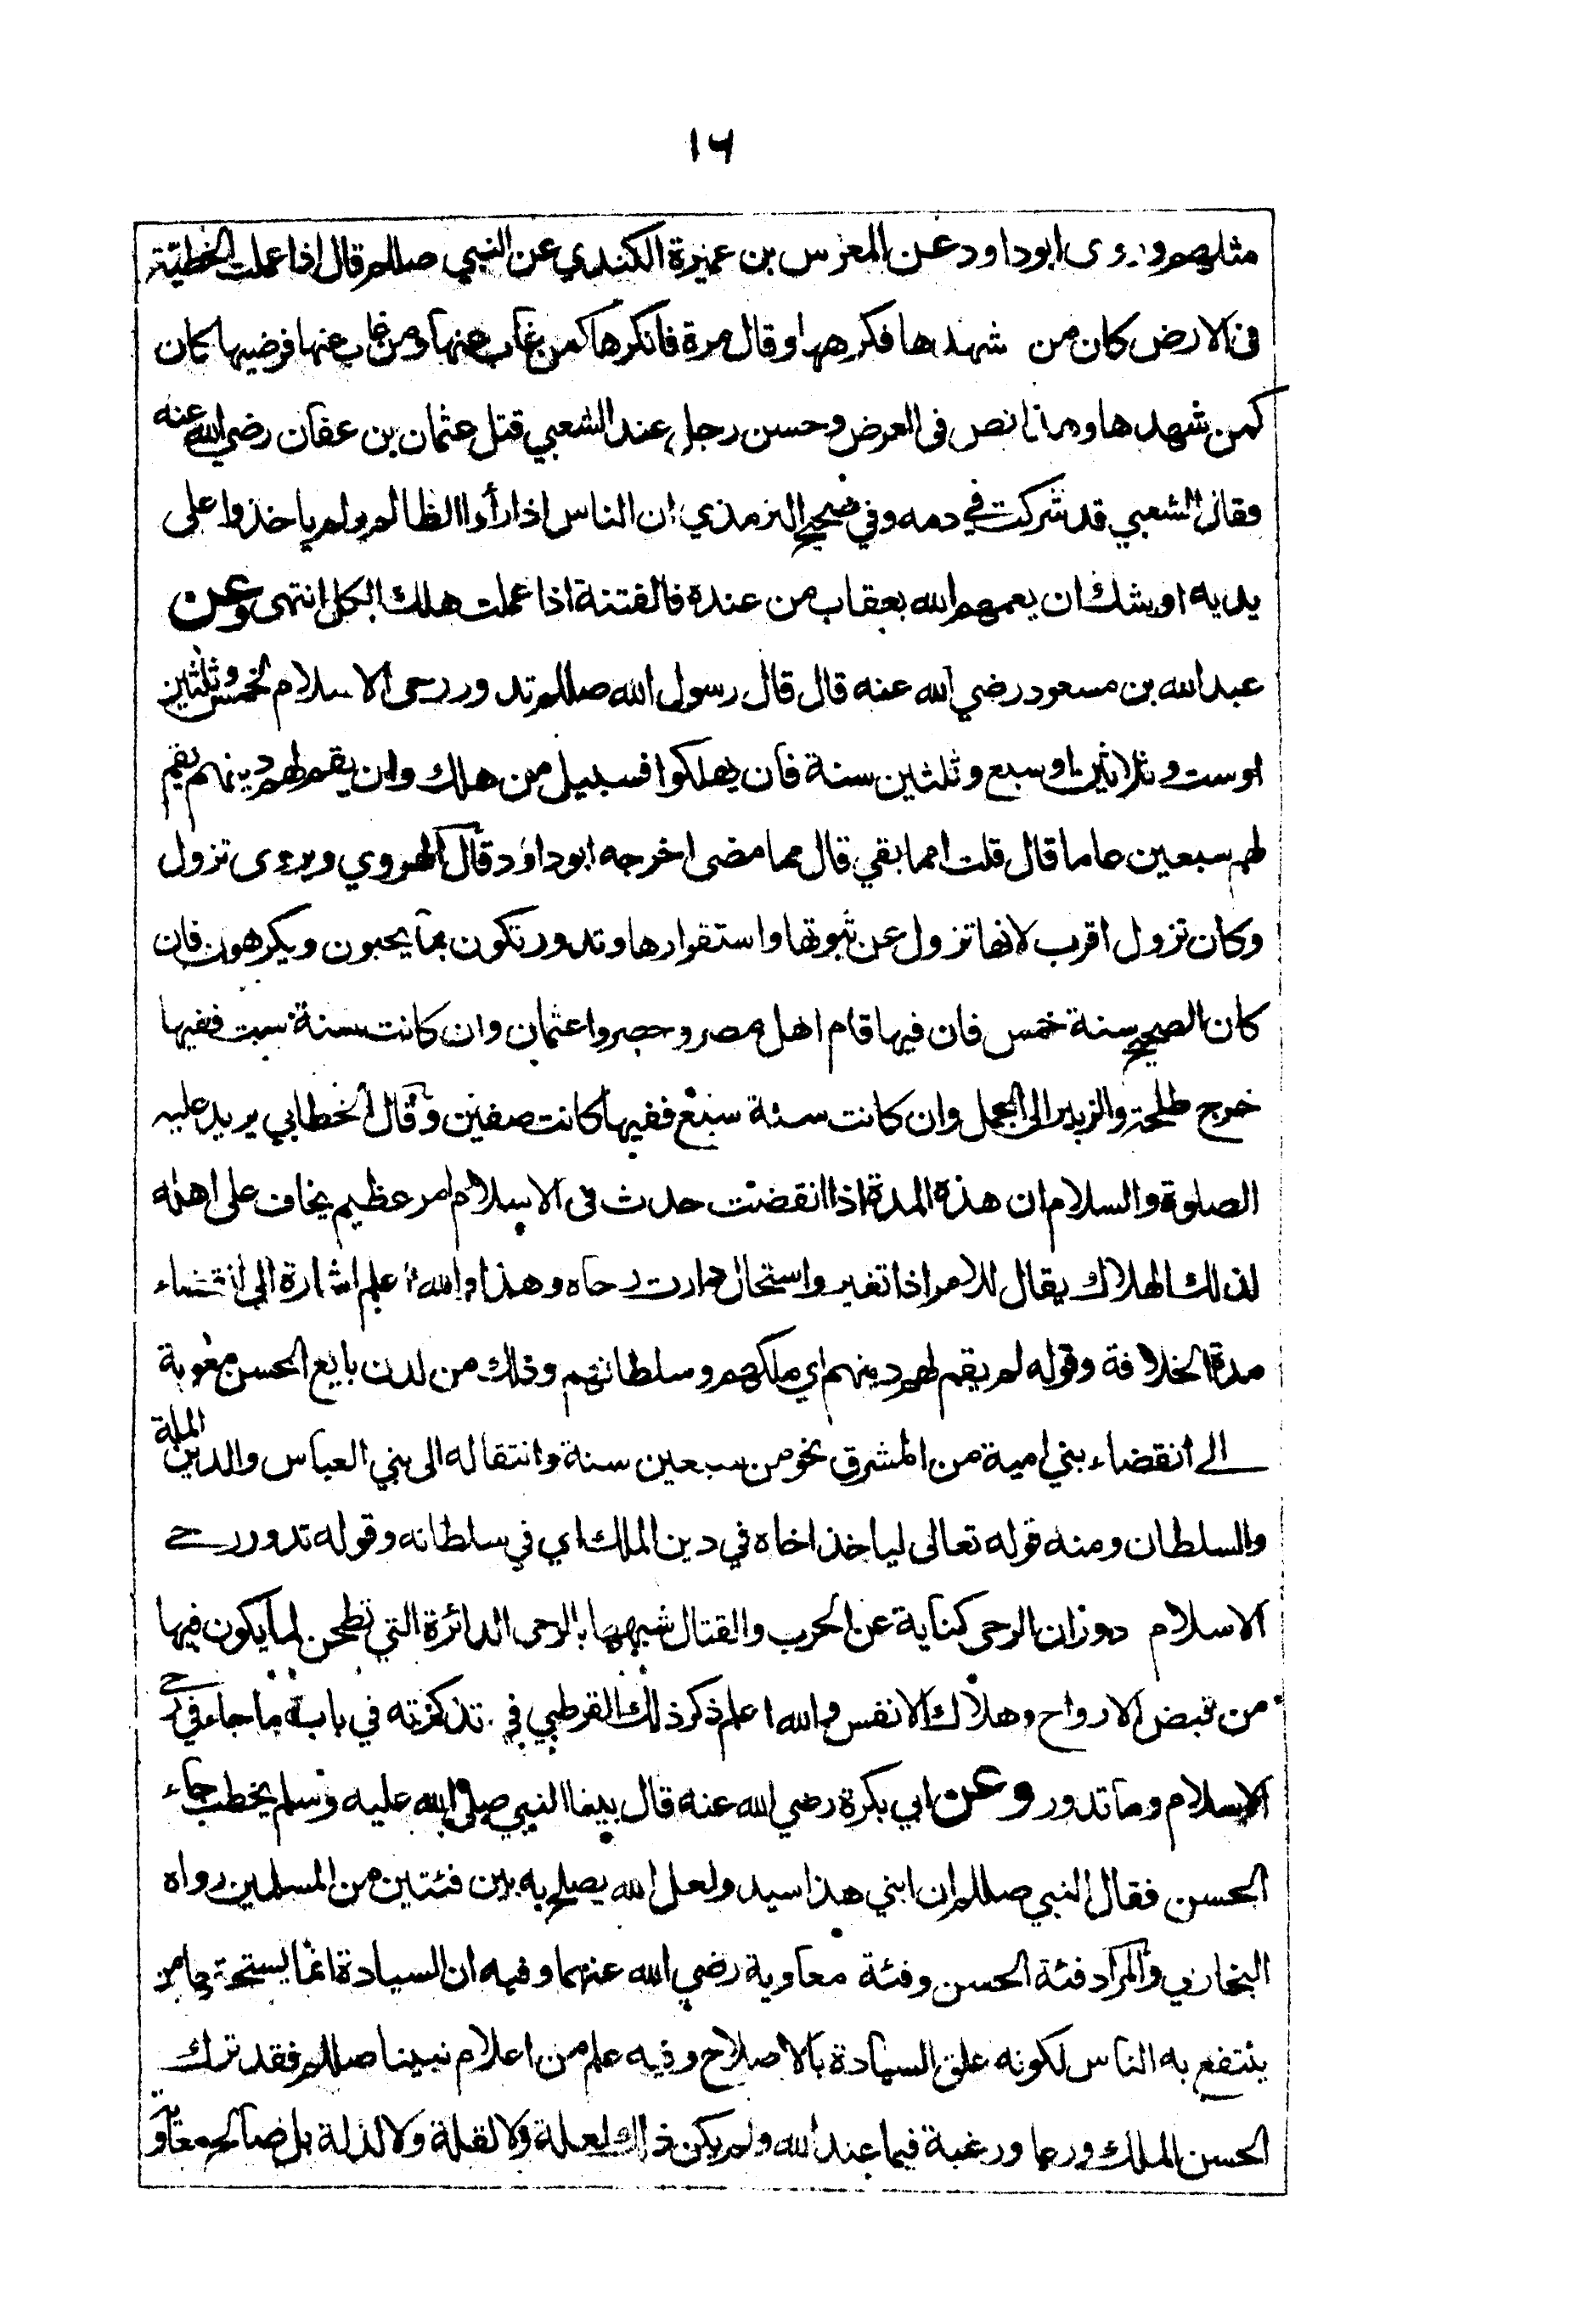 ١٦
مثلهم وروى ابو داود عن المعرس بن عميرة الكندي عن النبي صللم قال اذا عملت الخطيئة
فى الارض كان من شهدها فكرهها وقال مرة فانكرها كمن غاب عنها ومن غاب عنها فرضيها كان
كمن شهدها وهذا نص فى العرض وحسن رجل عند الشعبي قتل عثمان بن عفان رضي الله عنه
فقال الشعبي قد شركت في دمه وفي صحيح الترمذي ان الناس اذا رأوا الظالم ولم ياخذوا على
يديه اوشك ان يعمهم الله بعقاب من عنده فالفتنة اذا عملت هلك الكل انتهى وعن
عبد الله بن مسعود رضي الله عنه قال قال رسول الله صللم تدور رحى الاسلام لخمس وثلثين
او ست وثلاثين او سبع وثلثين سنة فان يهلكوا فسبيل من هلك وان يقم لهم دينهم يقم
لهم سبعين عاما قال قلت امما بقي قال مما مضى اخرجه ابو داود قال الهروي ويروى تزول
وكان تزول اقرب لانها تزول عن ثبوتها واستقرارها وتدور تكون بما يحبون ويكرهون فان
كان الصحيح سنة خمس فان فيها قام اهل مصر وحصروا عثمان وان كانت سنة ست ففيها
خرج طلحة والزبير الى الجمل وان كانت سنة سبع ففيها كانت صفين وقال الخطابي يريد عليه
الصلوة والسلام ان هذه المدة اذا انقضت حدث فى الاسلام امر عظيم يخاف على اهله
لذلك الهلاك يقال للامر اذا تغير واستحال دارت رحاه وهذا والله اعلم اشارة الى انقضاء
مدة الخلافة وقوله لم يقم لهم دينهم اي ملكهم وسلطانهم وذلك من لدن بايع الحسن معوية
الى انقضاء بني امية من المشرق نحو من سبعين سنة وانتقاله الى بني العباس والدين الملة
والسلطان ومنه قوله تعالى لياخذ اخاه في دين الملك اي في سلطانه وقوله تدور رحى
الاسلام دوران الرحى كناية عن الحرب والقتال شبهها بالرحى الدائرة التي تطحن لما يكون فيها
من قبض الارواح وهلاك الانفس والله اعلم ذكر ذلك القرطبي في تذكرته في باب ما جاء في رحى
الاسلام وما تدور وعن ابي بكرة رضي الله عنه قال بينما النبي صلى الله عليه وسلم يخطب جاء
الحسن فقال النبي صللم ان ابني هذا سيد ولعل الله يصلح به بين فئتين من المسلمين رواه
البخاري والمراد فئة الحسن وفئة معاوية رضي الله عنهما وفيه ان السيادة انما يستحقها من
ينتفع به الناس لكونه علق السيادة بالاصلاح وفيه علم من اعلام نبينا صللم فقد ترك
الحسن الملك ورعا ورغبة فيما عند الله ولم يكن ذلك لعلة ولا لقلة ولا لذلة بل صالح معاوية